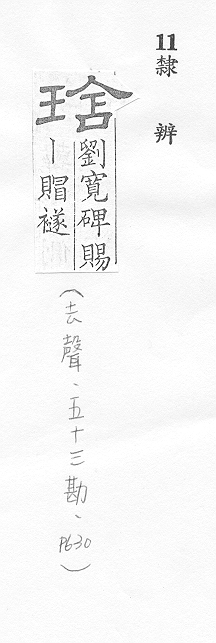 11 隸辨
琀
劉寬碑賜
｜賵襚
（去聲、五十三勘、P630）